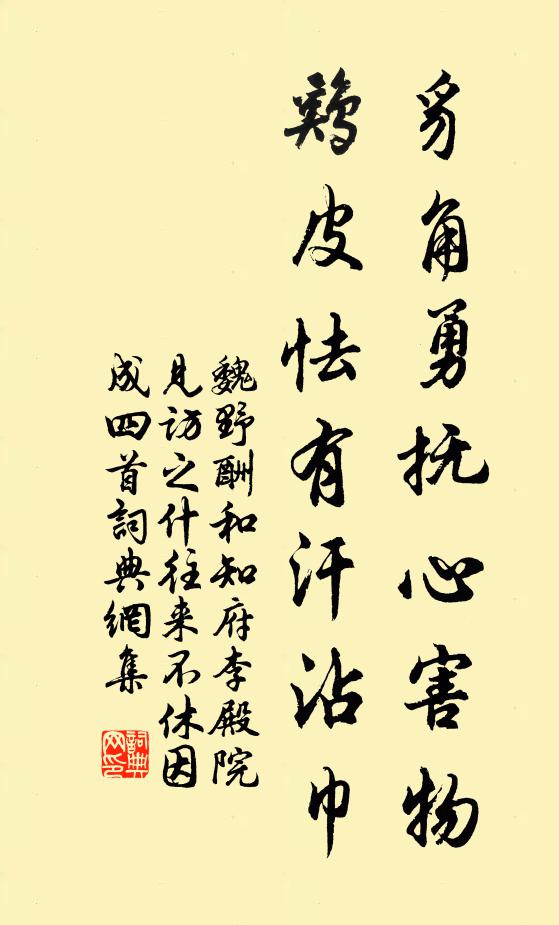 豸角勇抚心害物
鷄皮怯有汗沾巾
魏野酬和知府李殿院
見访之什往来不休因
成四首詞典網集
詞典网印